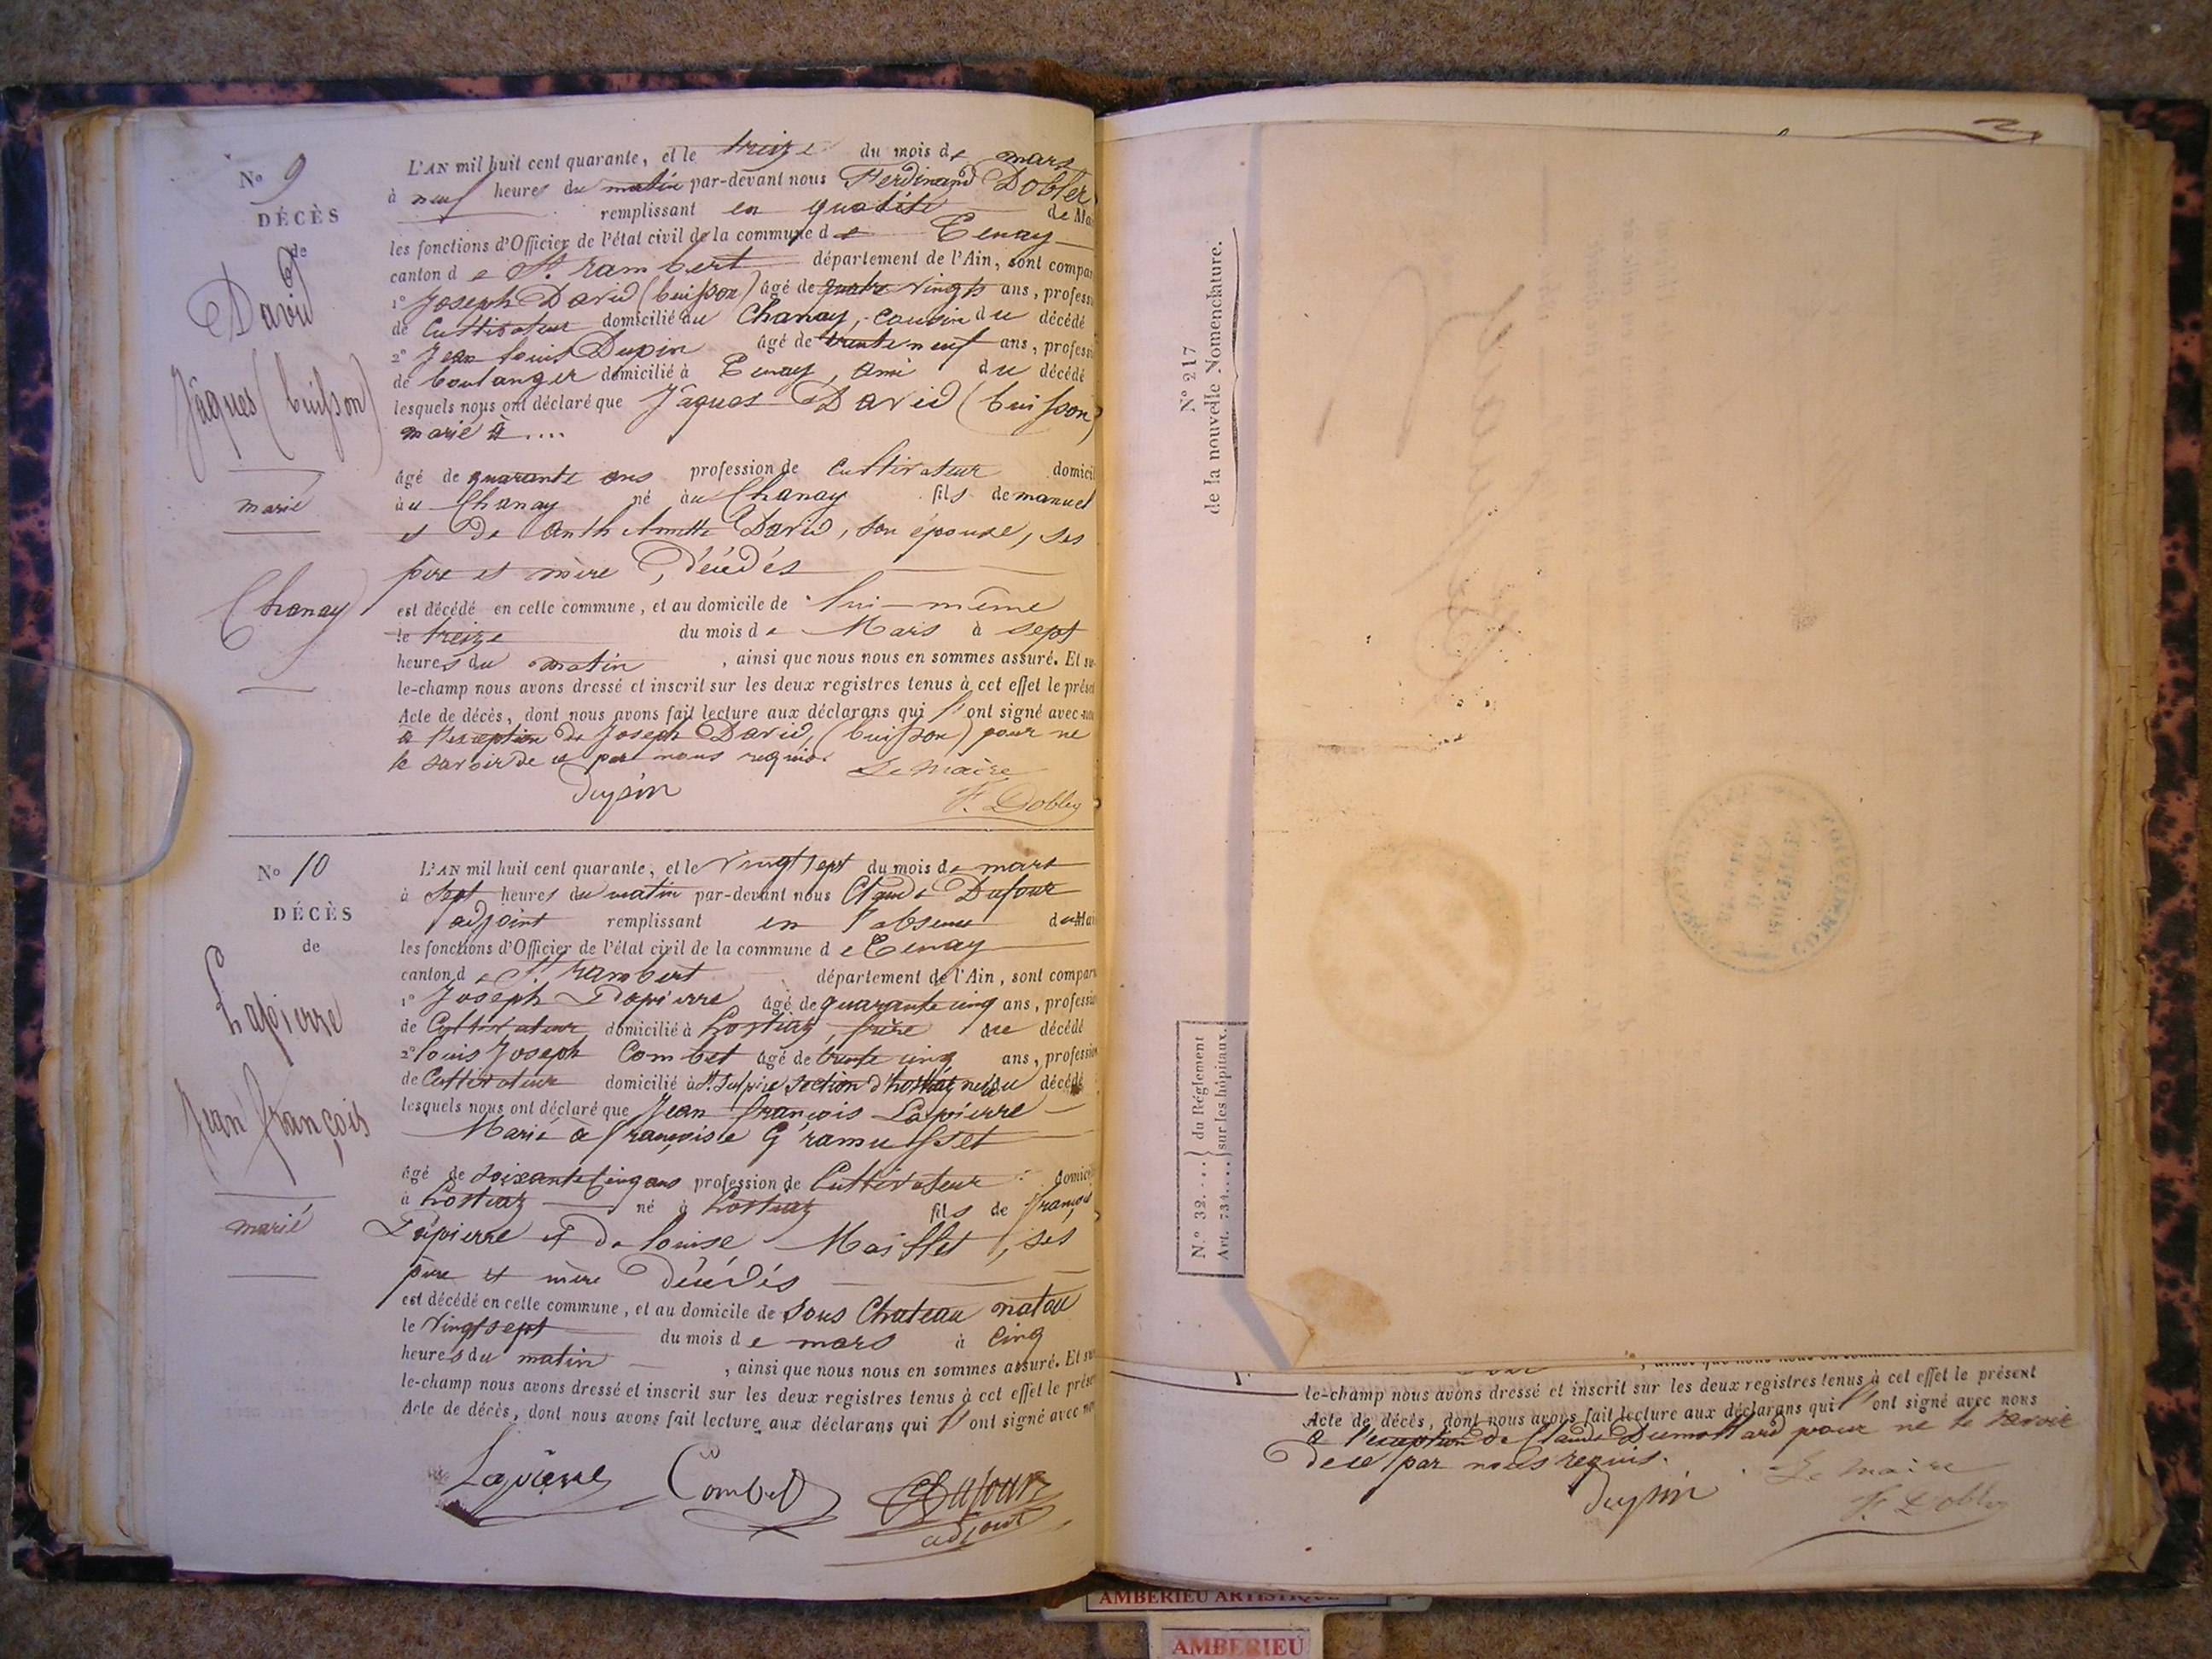 No 9
DÉCÈS
de
David
Jâques (buisson)
marié
Chanay
L'AN mil huit cent quarante, et le treize du mois de mars
à neuf heures du matin par-devant nous Ferdinand Dobler
remplissant en qualité de Ma
les fonctions d'Officier de l'état civil de la commune de Tenay
canton de St. rambert département de l'Ain, sont compar
1° Joseph David (buisson) âgé de quatre vingts ans, professi
de Cultivateur domicilié au Chanay, cousin du décédé
2° Jean louis Dupin âgé de trente neuf ans, professi
de boulanger domicilié à Tenay, ami du décédé
lesquels nous ont déclaré que Jâques David (buisson)
marié à ....
âgé de quarante ans profession de Cultivateur domicil
au Chanay né au Chanay fils de manuel
et de Anth David, son épouse, ses
père et mère, décédés
est décédé en cette commune, et au domicile de lui-même
le treize du mois de Mars à sept
heures du matin, ainsi que nous nous en sommes assuré. Et su
le-champ nous avons dressé et inscrit sur les deux registres tenus à cet effet le présen
Acte de décès, dont nous avons fait lecture aux déclarans qui l'ont signé avec nou
à l'exception de Joseph David, (buisson) pour ne
le savoir de ce par nous requis.
Le Maire
Dupin
F. Dobler
No 10
DÉCÈS
de
Lapierre
Jean françois
marié
L'AN mil huit cent quarante, et le vingt sept du mois de mars
à sept heures du matin par-devant nous Claude Dufour
adjoint remplissant en l'absence du Mai
les fonctions d'Officier de l'état civil de la commune de Tenay
canton de St. rambert département de l'Ain, sont compar
1° Joseph Lapierre âgé de quarante cinq ans, professio
de Cultivateur domicilié à hostiaz, frère du décédé
2° louis Joseph Combet âgé de trente cinq ans, profession
de Cultivateur domicilié à St. Sulpice section d'hostiaz neveu décédé
lesquels nous ont déclaré que Jean françois Lapierre
Marié à françoise Gramusset
âgé de soixante cinq ans profession de Cultivateur domicil
à hostiaz né à hostiaz fils de françois
Lapierre et de louise Maillet, ses
père et mère décédés
est décédé en cette commune, et au domicile de sous Chateau natou
le vingt sept du mois de mars à cinq
heures du matin, ainsi que nous nous en sommes assuré. Et su
le-champ nous avons dressé et inscrit sur les deux registres tenus à cet effet le prése
Acte de décès, dont nous avons fait lecture aux déclarans qui l'ont signé avec no
Lapierre Combet Dufour
adjoint
N° 217
de la nouvelle Nomenclature.
N.° 32. ... } du Réglement
Art. 734.... } sur les hôpitaux.
le-champ nous avons dressé et inscrit sur les deux registres tenus à cet effet le présent
Acte de décès, dont nous avons fait lecture aux déclarans qui l'ont signé avec nous
à l'exception de Claude Dumollard pour ne le savoir
de ce par nous requis.
Le Maire
Dupin
F. Dobler
AMBERIEU ARTISTIQUE
AMBERIEU